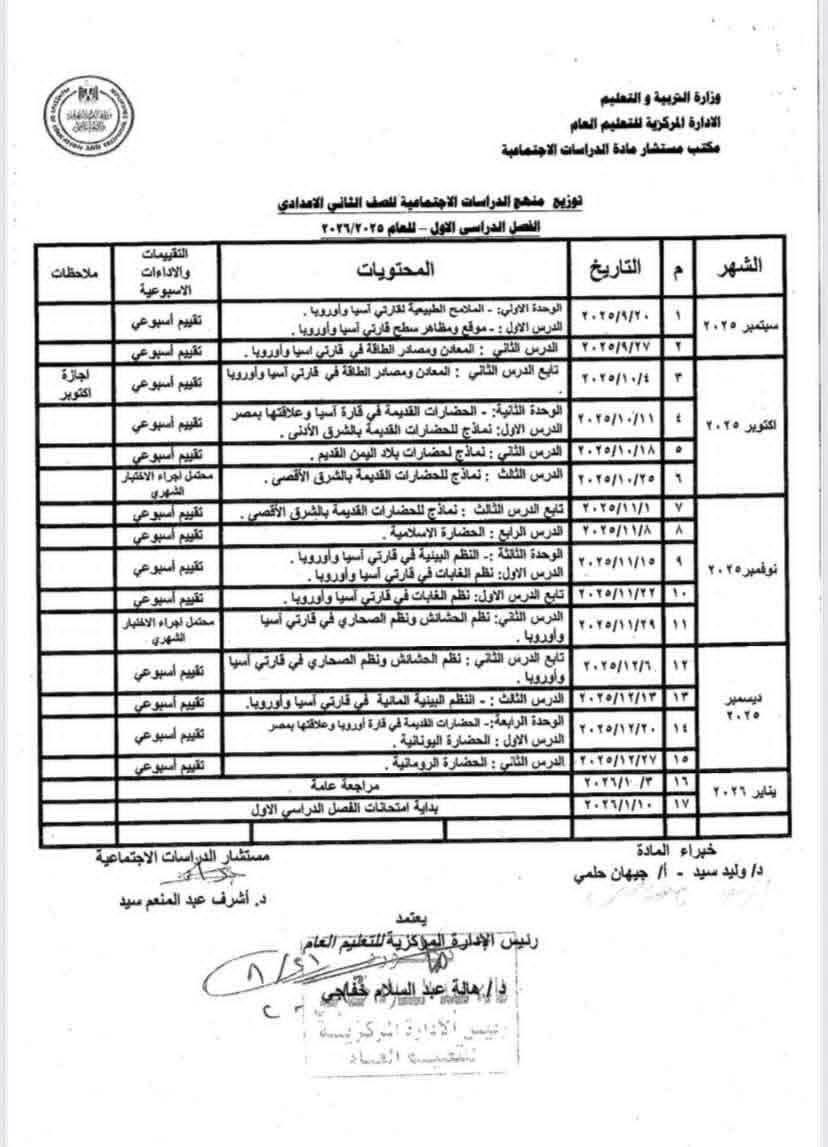 وزارة التربية و التعليم
الادارة المركزية للتعليم العام
مكتب مستشار مادة الدراسات الاجتماعية
توزيع منهج الدراسات الاجتماعية للصف الثاني الاعدادي
الفصل الدراسي الاول – للعام ٢٠٢٦/٢٠٢٥
الشهر م التاريخ المحتويات التقييمات والاداءات الاسبوعية ملاحظات
سبتمبر ٢٠٢٥
١ ٢٠٢٥/٩/٢٠ الوحدة الاولي: - الملامح الطبيعية لقارتي آسيا وأوروبا .
الدرس الاول : - موقع ومظاهر سطح قارتي آسيا وأوروبا . تقييم أسبوعي
٢ ٢٠٢٥/٩/٢٧ الدرس الثاني : المعادن ومصادر الطاقة في قارتي اسيا وأوروبا . تقييم أسبوعي
اكتوبر ٢٠٢٥
٣ ٢٠٢٥/١٠/٤ تابع الدرس الثاني : المعادن ومصادر الطاقة في قارتي آسيا وأوروبا . تقييم أسبوعي اجازة اكتوبر
٤ ٢٠٢٥/١٠/١١ الوحدة الثانية: - الحضارات القديمة في قارة آسيا وعلاقتها بمصر
الدرس الاول: نماذج للحضارات القديمة بالشرق الأدنى . تقييم أسبوعي
٥ ٢٠٢٥/١٠/١٨ الدرس الثاني : نماذج لحضارات بلاد اليمن القديم . تقييم أسبوعي
٦ ٢٠٢٥/١٠/٢٥ الدرس الثالث : نماذج للحضارات القديمة بالشرق الأقصى . محتمل اجراء الاختبار الشهري
نوفمبر ٢٠٢٥
٧ ٢٠٢٥/١١/١ تابع الدرس الثالث : نماذج للحضارات القديمة بالشرق الأقصى . تقييم أسبوعي
٨ ٢٠٢٥/١١/٨ الدرس الرابع : الحضارة الاسلامية . تقييم أسبوعي
٩ ٢٠٢٥/١١/١٥ الوحدة الثالثة :- النظم البيئية في قارتي آسيا وأوروبا .
الدرس الاول: نظم الغابات في قارتي آسيا وأوروبا . تقييم أسبوعي
١٠ ٢٠٢٥/١١/٢٢ تابع الدرس الاول: نظم الغابات في قارتي آسيا وأوروبا . تقييم أسبوعي
١١ ٢٠٢٥/١١/٢٩ الدرس الثاني: نظم الحشائش ونظم الصحاري في قارتي آسيا
وأوروبا . محتمل اجراء الاختبار الشهري
ديسمبر ٢٠٢٥
١٢ ٢٠٢٥/١٢/٦ تابع الدرس الثاني : نظم الحشائش ونظم الصحاري في قارتي آسيا
وأوروبا . تقييم أسبوعي
١٣ ٢٠٢٥/١٢/١٣ الدرس الثالث : - النظم البيئية المائية في قارتي آسيا وأوروبا. تقييم أسبوعي
١٤ ٢٠٢٥/١٢/٢٠ الوحدة الرابعة:- الحضارات القديمة في قارة أوروبا وعلاقتها بمصر
الدرس الاول : الحضارة اليونانية . تقييم أسبوعي
١٥ ٢٠٢٥/١٢/٢٧ الدرس الثاني : الحضارة الرومانية . تقييم أسبوعي
يناير ٢٠٢٦
١٦ ٢٠٢٦/١٠/٣ مراجعة عامة
١٧ ٢٠٢٦/١/١٠ بداية امتحانات الفصل الدراسي الاول
خبراء المادة
د/ وليد سيد - أ/ جيهان حلمي
مستشار الدراسات الاجتماعية
د. أشرف عبد المنعم سيد
يعتمد
رئيس الإدارة المركزية للتعليم العام
٨/٢١
د / هالة عبد السلام خفاجي
رئيس الادارة المركزية
للتعليم العام